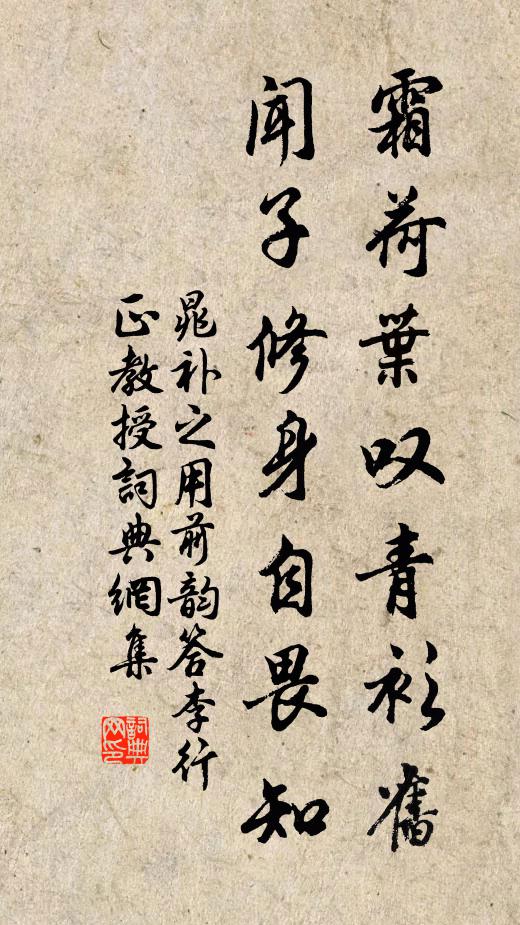 霜荷葉叹青衫舊
闻子修身自畏知
晁补之用前韵答李行
正教授詞典網集
詞典网印